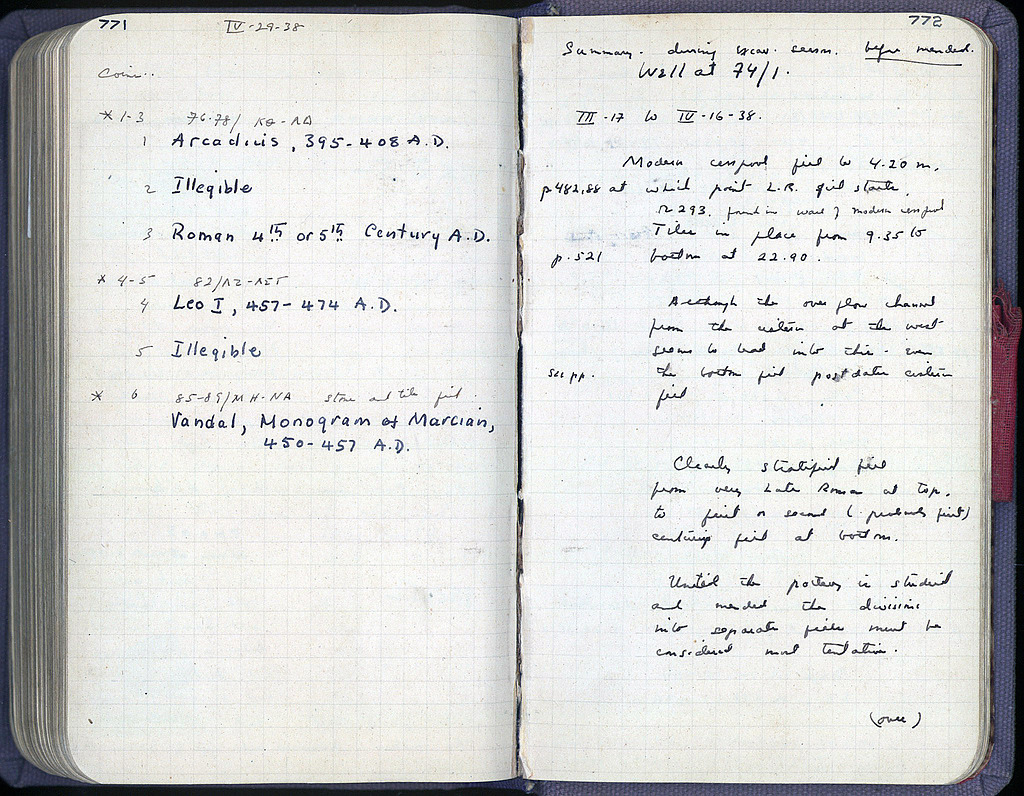 771
IV-29-38
Coins.
* 1-3 76-78/ΚΘ-ΛΑ
1 Arcadius, 395-408 A.D.
2 Illegible
3 Roman 4th or 5th Century A.D.
* 4-5 82/
4 Leo I, 457-474 A.D.
5 Illegible
* 6 85-89/ΜΗ-ΝΑ stone and tile fill.
Vandal, Monogram of Marcian,
450-457 A.D.
772
Summary. during excav. season. before mended.
Well at 74/1.
III-17 to IV-16-38.
Modern cesspool fill to 4.20 m.
p 482,88 at which point L.R. fill starts.
293. found in wall of modern cesspool
Tiles in place from 9.35 to
p. 521 bottom at 22.90.
Although the overflow channel
from the cistern at the west
seems to lead into this - even
see pp. the bottom fill postdates cistern
fill
Clearly stratified fill
from very Late Roman at top.
to first or second (probably first)
century fill at bottom.
Until the pottery is studied
and mended the divisions
into separate fills must be
considered most tentative.
(over)